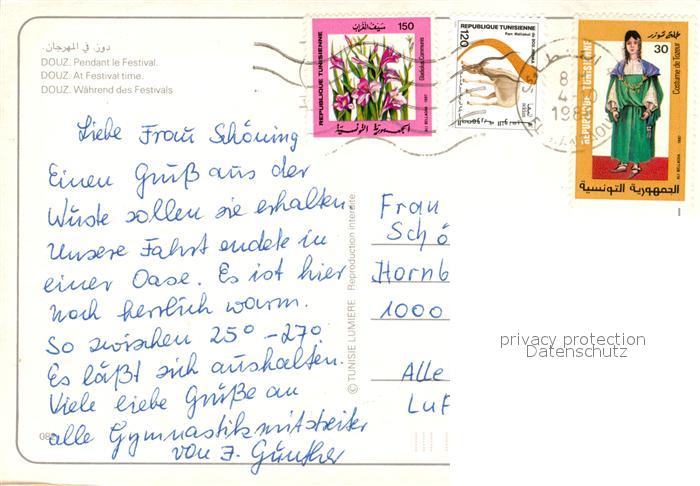 دوز. في المهرجان.
DOUZ. Pendant le Festival.
DOUZ. At Festival time.
DOUZ. Während des Festivals
150
REPUBLIQUE TUNISIENNE
Gladiolus Communis
الجمهورية التونسية
REPUBLIQUE TUNISIENNE
120
Parc National
REPUBLIQUE TUNISIENNE
30
Costume de Tozeur
الجمهورية التونسية
8
4
Liebe Frau Schöning
Einen Gruß aus der
Wüste sollen sie erhalten.
Unsere Fahrt endete in
einer Oase. Es ist hier
noch herrlich warm.
So zwischen 25° - 27°.
Es läßt sich aushalten.
Viele liebe Grüße an
alle Gymnastikmitstreiter
von J. Günther
© TUNISIE LUMIERE Reproduction interdite
Frau
Schö
Hornb
1000
Alle
Luf
privacy protection
Datenschutz